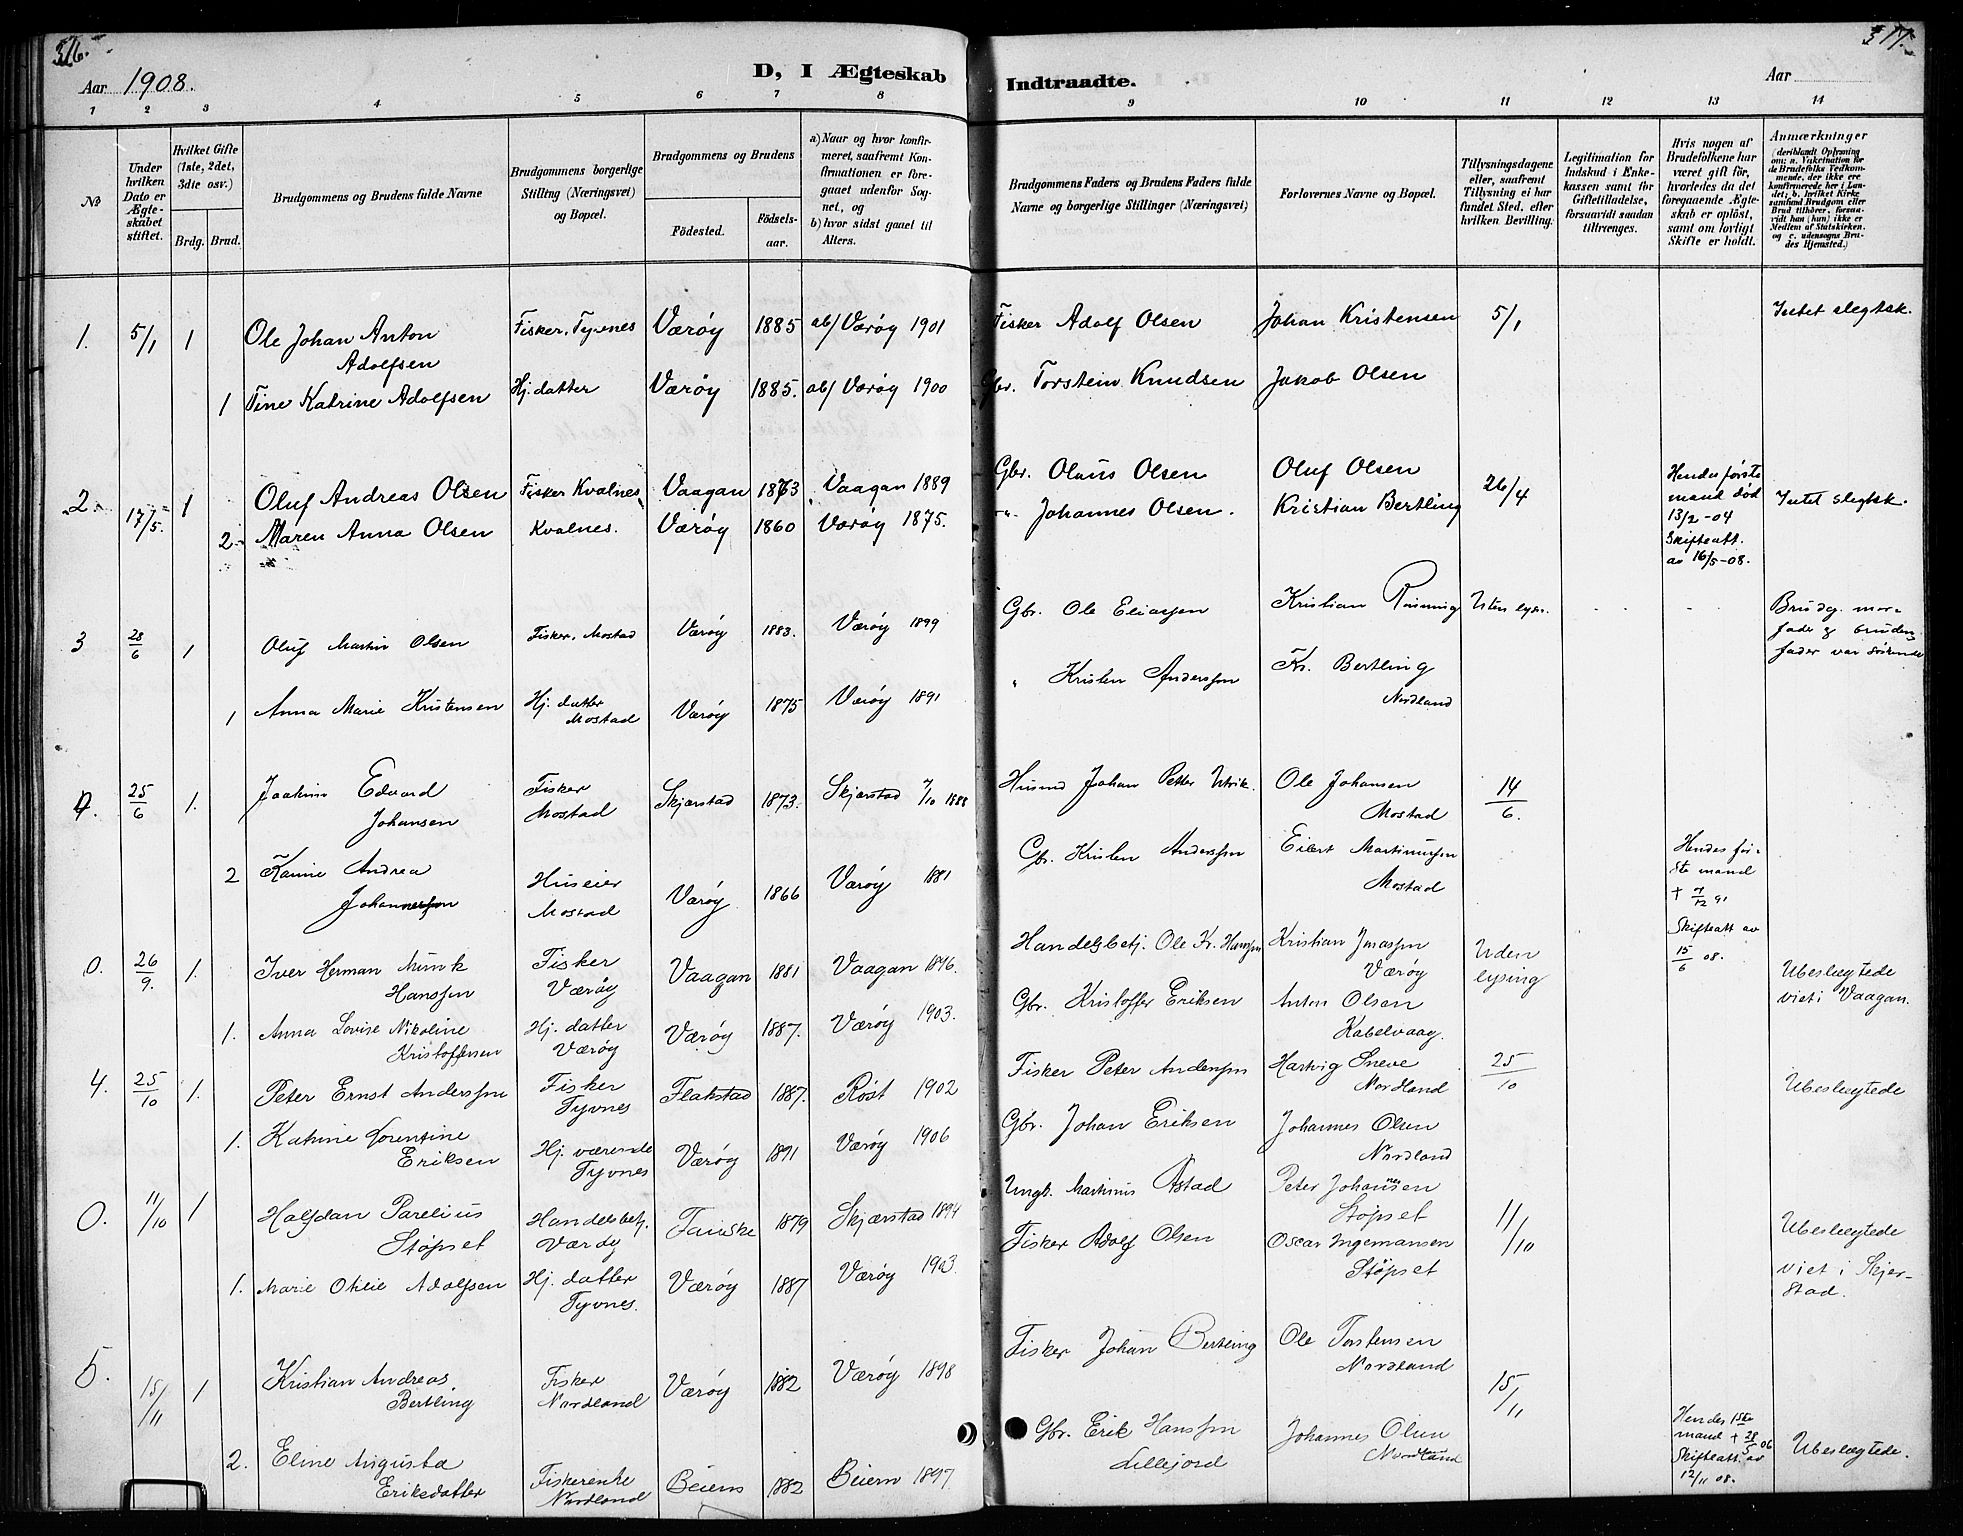 316.
Aar 1908.
D, I Ægteskab
1 2 3 4 5 6 7 8
No
Under hvilken Dato er Ægteskabet stiftet.
Hvilket Gifte (1ste, 2det, 3die osv.)
Brdg. Brud.
Brudgommens og Brudens fulde Navne
Brudgommens borgerlige Stilling (Næringsvei) og Bopæl.
Brudgommens og Brudens
Fødested. Fødsels-aar.
a) Naar og hvor konfirmeret, saafremt Konfirmationen er foregaaet udenfor Sognet, og
b) hvor sidst gaaet til Alters.
1. 5/1 1 Ole Johan Anton Fisker, Tyvnes Værøy 1885 ab/ Værøy 1901
Adolfsen
1 Tine Katrine Adolfsen Hj. datter Værøy 1885. ab/ Værøy 1900
2. 17/5. 1 Oluf Andreas Olsen Fisker Kvalnes Vaagan 1873 Vaagan 1889
2 Maren Anna Olsen Kvalnes. Værøy 1860 Værøy 1875.
3 28/6 1 Oluf Martin Olsen Fisker, Mostad Værøy 1883. Værøy 1899
1 Anna Marie Kristensen Hj. datter Værøy 1875 Værøy 1891
Mostad
25/6 1. Joakim Edvard Fisker Skjærstad 1873. Skjerstad 7/10 1888
Johansen Mostad
2 Andrea Huseier Værøy 1866 Værøy 1881
Mostad
0. 26/9. 1. Iver Herman Munk Fisker Vaagan 1881 Vaagan 1896.
Hanssen Værøy
1. Anna Lovise Nikoline Hj. datter Værøy 1887. Værøy 1903.
Kristoffersen Værøy
4. 25/10 1. Peter Ernst Anderssen Fisker Flakstad 1887. Røst 1902
Tyvnes
1. Katrine Lorentine Hj. værende Værøy 1891 Værøy 1906
Eriksen Tyvnes
0. 11/10 1 Halfdan Parelius Handelsbetj. Fauske 1879 Skjærstad 1894
Støpset Værøy
1. Marie Otilie Adolfsen Hj. datter Værøy 1887 Værøy 1903.
Tyvnes.
5. 15/11 1 Kristian Andreas Fisker Værøy 1882 Værøy 1898
Bertling Nordland
2. Eline Augusta Fiskerenke Beiern 1882 Beiern 1897
Eriksdatter Nordland
317.
Indtraadte.
Aar
9 10 11 12 13 14
Brudgommens Faders og Brudens Faders fulde Navne og borgerlige Stillinger (Næringsvei)
Forlovernes Navne og Bopæl.
Tillysningsdagene eller, saafremt Tillysning ei har fundet Sted, efter hvilken Bevilling.
Legitimation for Indskud i Enkekassen samt for Giftetilladelse, forsaavidt saadan tiltrænges.
Hvis nogen af Brudefolkene har været gift før, hvorledes da det foregaaende Ægteskab er opløst, samt om lovligt Skifte er holdt.
Anmærkninger
(deriblandt Oplysning om: a. Vakcination for de Brudefolks Vedkommende, der ikke ere konfirmerede her i Landet; b. hvilket Kirkesamfund Brudgom eller Brud tilhører, forsaavidt han (hun) ikke er Medlem af Statskirken, og c. udensogns Brudes Hjemsted.)
Fisker Adolf Olsen Johan Kristensen 5/1 Intet slegtsk.
Gbr. Torstein Knudsen Jakob Olsen
Gbr. Olaus Olsen Oluf Olsen 26/4 Hendes første mand død 13/2-04 Skifteatt. av 16/5-08. Intet slegtsk.
Johannes Olsen. Kristian Bertling
Gbr. Ole Eliassen Kristian Uten lysn. - - Brudg. morfader og brudens fader var søskende
" Kristen Anderssen Kr. Bertling
Nordland
Husmd Johan Petter Ulrik. Ole Johansen 14/6.
Mostad
Gbr. Kristen Anderssen Eilert Martinussen Hendes første mand † 7/12 91 Skifteatt av 15/6 08.
Mostad
Handelsbetj. Ole Kr. Hanssen Kristian Jonassen Uden lysing Ubeslægtede viet i Vaagan.
Værøy
Gbr. Kristoffer Eriksen Anton Olsen
Kabelvaag.
Fisker Peter Anderssen Hartvig Sneve 25/10 Ubeslægtede
Nordland
Gbr. Johan Eriksen Johannes Olsen
Nordland
Ungk. Martinus Åstad Peter Johannesen 11/10 Ubeslægtede viet i Skjerstad.
Støpset
Fisker Adolf Olsen Oscar Ingemansen
Støpset
Fisker Johan Bertling Ole Torstensen 15/11
Nordland
Gbr. Erik Hanssen Johannes Olsen Hendes 1ste mand † 28/5 06 Skifteatt. av 12/11 08. Ubeslægtede.
Lillejord Nordland